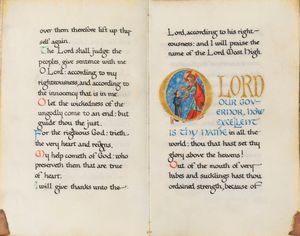 over them therefore lift up thy
self again.
The Lord shall judge the
peoples, give sentence with me
O Lord: according to my
righteousness, and according to
the innocency that is in me.
O let the wickedness of the
ungodly come to an end: but
guide thou the just.
For the righteous God: trieth
the very heart and reigns.
My help cometh of God: who
preserveth them that are true
of heart.
I will give thanks unto the
Lord, according to his right-
eousness: and I will praise the
name of the Lord Most High.
O LORD
OUR GOV-
ERNOR, HOW
EXCELLENT
IS THY NAME in all the
world: thou that hast set thy
glory above the heavens!
Out of the mouth of very
babes and sucklings hast thou
ordained strength, because of